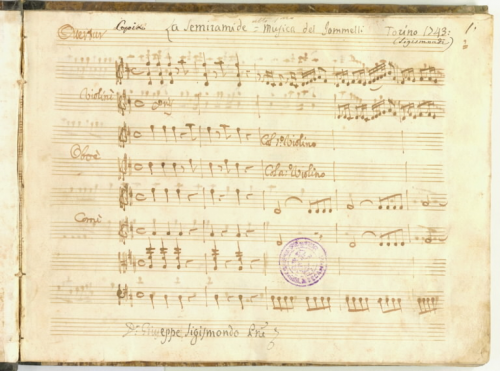 Overtura Copia La Semiramide Musica del Jommelli Torino 1743:
(Sigismondi)
1.
Violini
Col 1º Violino
Oboè
Col 2º Violino
Corni
Dr. Giuseppe Sigismondo Prê